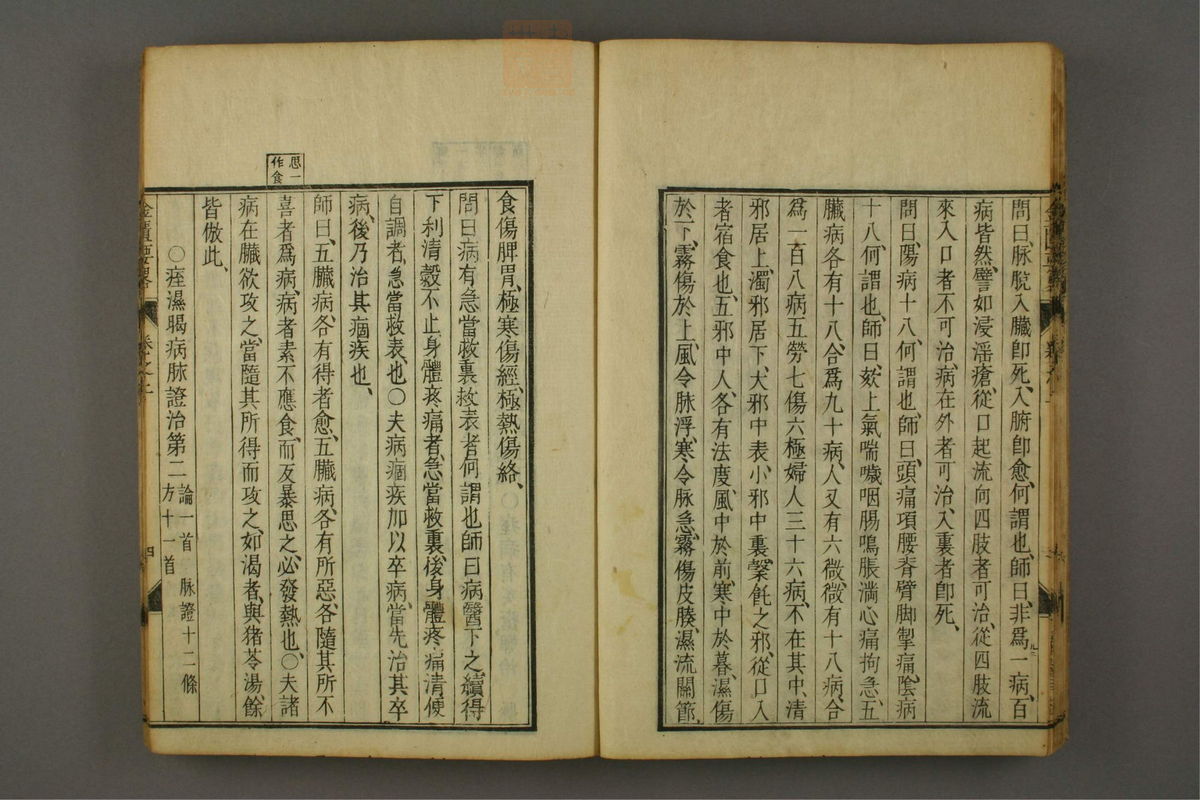 問曰、脉脫入臟卽死、入腑卽愈、何謂也、師曰、非爲一病、百
病皆然、譬如浸淫瘡、從口起流向四肢者可治、從四肢流
來入口者不可治、病在外者可治、入裏者卽死、
問曰、陽病十八、何謂也、師曰、頭痛項腰脊臂脚掣痛、陰病
十八、何謂也、師曰、欬上氣喘噦咽腸鳴脹滿心痛拘急、五
臟病各有十八、合爲九十病、人又有六微、微有十八病、合
爲一百八病、五勞七傷六極婦人三十六病、不在其中、清
邪居上、濁邪居下、大邪中表、小邪中裏、䅽飥之邪、從口入
者宿食也、五邪中人、各有法度、風中於前、寒中於暮、濕傷
於下、霧傷於上、風令脉浮、寒令脉急、霧傷皮腠、濕流關節、
食傷脾胃、極寒傷經、極熱傷絡、
問曰病有急當救裏救表者何謂也師曰病醫下之續得
下利清穀不止、身體疼痛者、急當救裏、後身體疼痛清便
自調者、急當救表、也○夫病痼疾加以卒病、當先治其卒
病、後乃治其痼疾也、
師曰、五臟病、各有得者愈、五臟病、各有所惡、各隨其所不
喜者爲病、病者素不應食、而反暴思之、必發熱也、○夫諸
病在臟欲攻之、當隨其所得而攻之、如渴者、與猪苓湯、餘
皆倣此、
○痓濕暍病脉證治第二 論一首 脉證十二條
方十一首
思一
作食
金匱要畧
卷之上
四